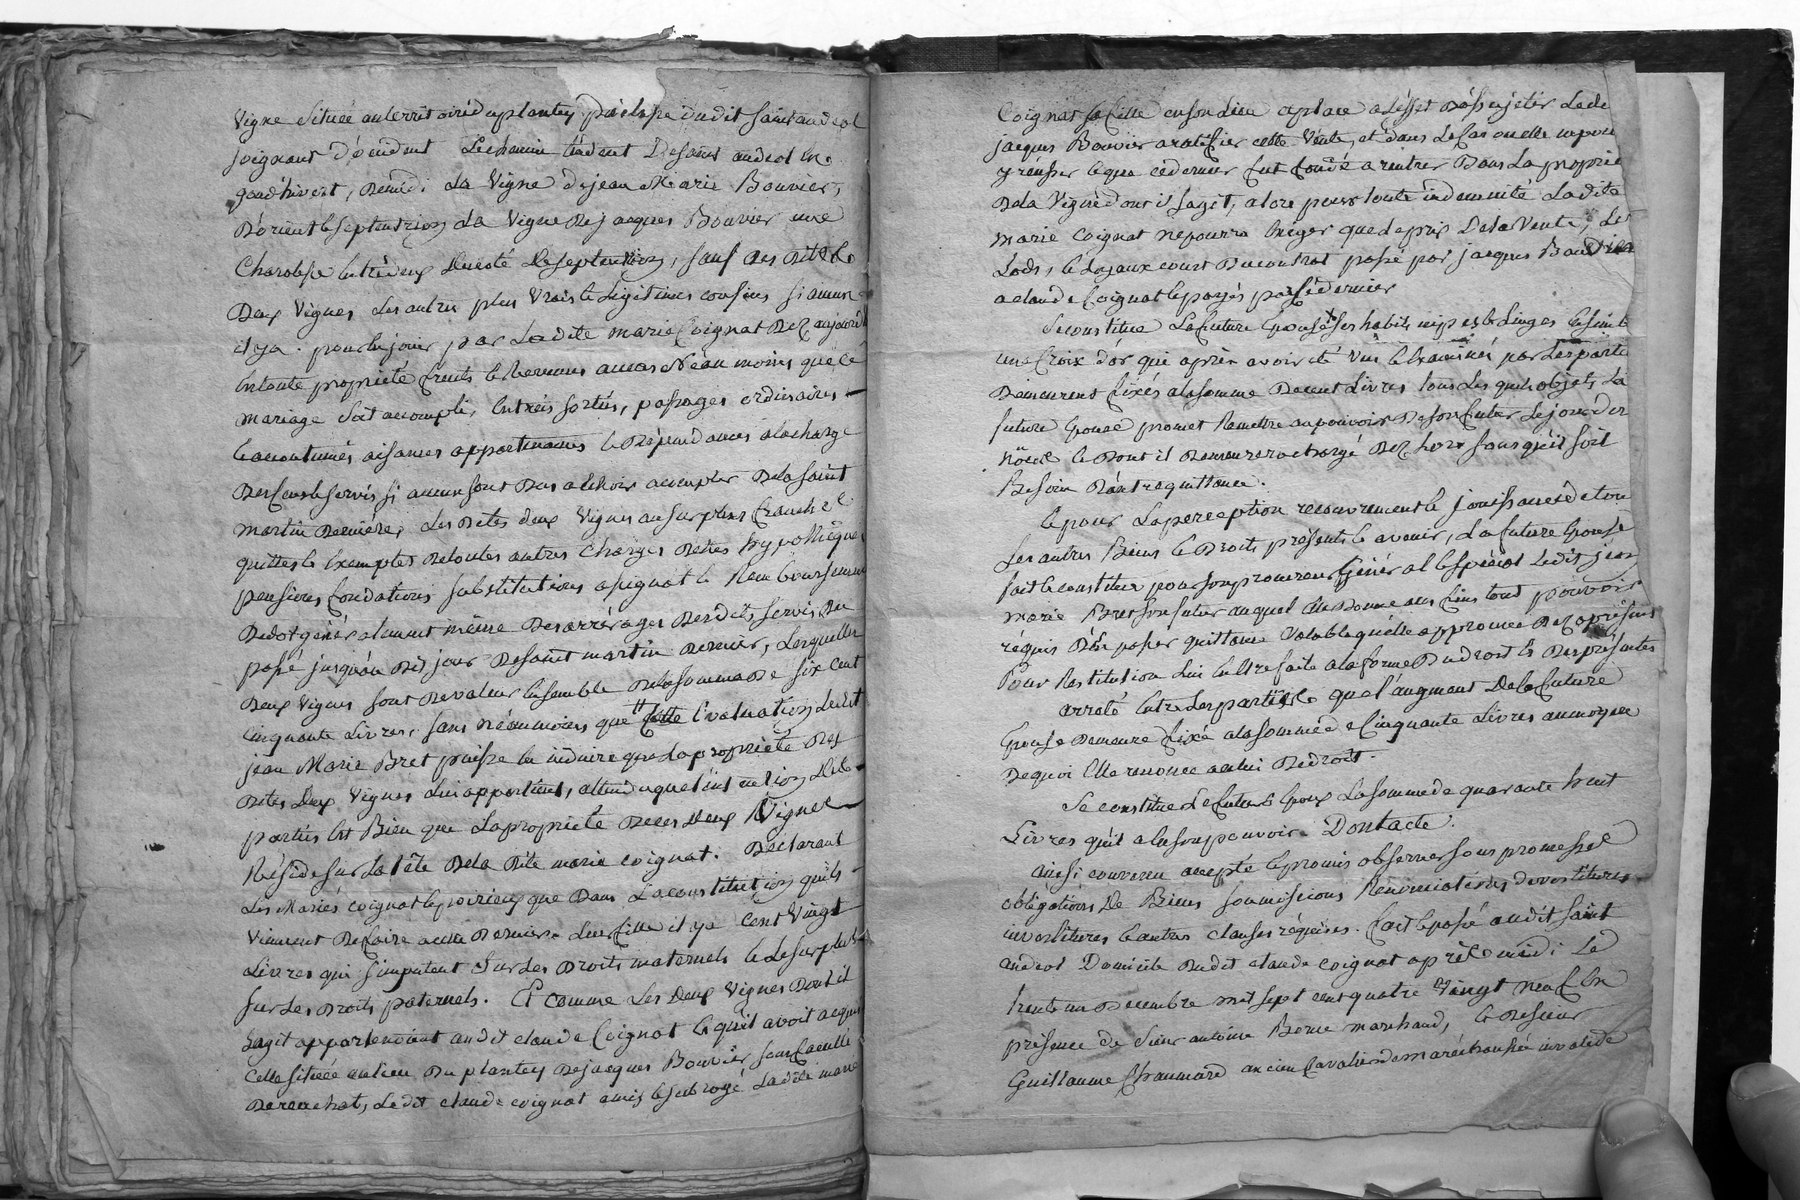 vigne située au territoire du plantey paroisse dudit saint andeol
joignant d'occident le chemin tendent de saint andeol en
goud'hivert, de midi la vigne de jean Marie Bouvier,
d'orient et septentrion la vigne de jacques Bouvier une
charobsse entre deux du coté de septentrion, sauf des dittes
deux vignes les autres plus vrais et legitimes confins si aucun
il y a. pour en jouir par la dite marie Coignat dez aujourd'hui
en toute proprieté fruits et revenus avenas Néan moins que le
mariage soit accompli, entrées sorties, passages ordinaires
et accoutumés aisances appartenances et dépendances a la charge
des cens et servis si aucuns sont dus a échoir a compter de la saint
martin derniere, les dites deux vignes au surplus franches
quittes et exemptes de toutes autres charges dettes hypothéques
pensions fondations substitutions assignat et Rembourcement
de dot généralement même des arrérages desdits servis du
passé jusqu'au dit jour de saint martin dernier, lesquelles
deux vignes sont de valeur ensemble de la somme de six cent
cinquante livres, sans néanmoins que cette évaluation ledit
jean Marie Bret puisse en induire que la proprieté des
dites deux vignes lui appartient, attendu que l'intention des
parties est Bien que la proprieté de ces deux vignes
Réside sur la tête de la dite marie coignat. Declarant
les Mariés coignat et poirieux que dans la constitution qu'ils
viennent de faire a cette derniere leur fille il y a Cent vingt
livres qui s'imputent sur les droits maternels et le surplus
sur les droits paternels. Et comme les deux vignes dont il
s'agit appartenoient audit claude Coignat et qu'il avoit acquis
celle située au lieu du plantey de jacques Bouvier sous faculté
de rachat, le dit claude coignat a mis et subrogé la dite marie
Coignat sa fille en son lieu et place a l'effet d'assujetir ledit
jacques Bouvier a ratifier cette vente, et dans le cas ou elle ne pou
y réussir et que ce dernier fut fondé a rentrer dans la proprié
de la vigne dont il s'agit, alors pour toute indemnité la dite
marie Coignat ne pourra exiger que le prix de la vente, les
Lods, et loyaux couts du contrat passé par jacques Bouvier
a claude Coignat et payés par ce dernier
Se constitue la future Epouse ses habits nipes et linges ensemble
une Croix d'or qui après avoir été vus et examinés par les parties
demeurent fixés a la somme de cent livres tous les quels objets la
future Epouse promet Remettre au pouvoir de son futur le jour des
nôces et dont il demeurera chargé dez lors sans qu'il soit
Besoin d'autre quittance.
et pour la perception recouvrement et jouissance de tous
ses autres Biens et Droits présents et avenir, la future Epouse
fait et constitue pour son procureur général et spécial ledit jean
marie Bret son futur auquel elle donne aux fins tout pouvoir
réquis d'en passer quittance valable qu'elle approuve dez a présent
Pour Restitution lui en être faite a la forme du droit et des présentes
arreté entre les parties que l'augment de la future
Epouse demeure fixé a la somme de Cinquante livres au moyen
de quoi elle renonce a celui de droit.
Se constitue le futur Epoux la somme de quarante huit
livres qu'il a en son pouvoir. Dont acte.
ainsi convenu accepté et promis observer sous promesses
obligations de Biens soumissions Renonciations devestitures
investitures et autres clauses réquises. fait et passé audit saint
andeol Domicile dudit claude coignat après midi Le
trente un Decembre mil sept cent quatre vingt neuf En
présence de sieur antoine Borne marchand, et de sieur
Guillaume Chaumard ancien Cavalier de maréchaussée invalide